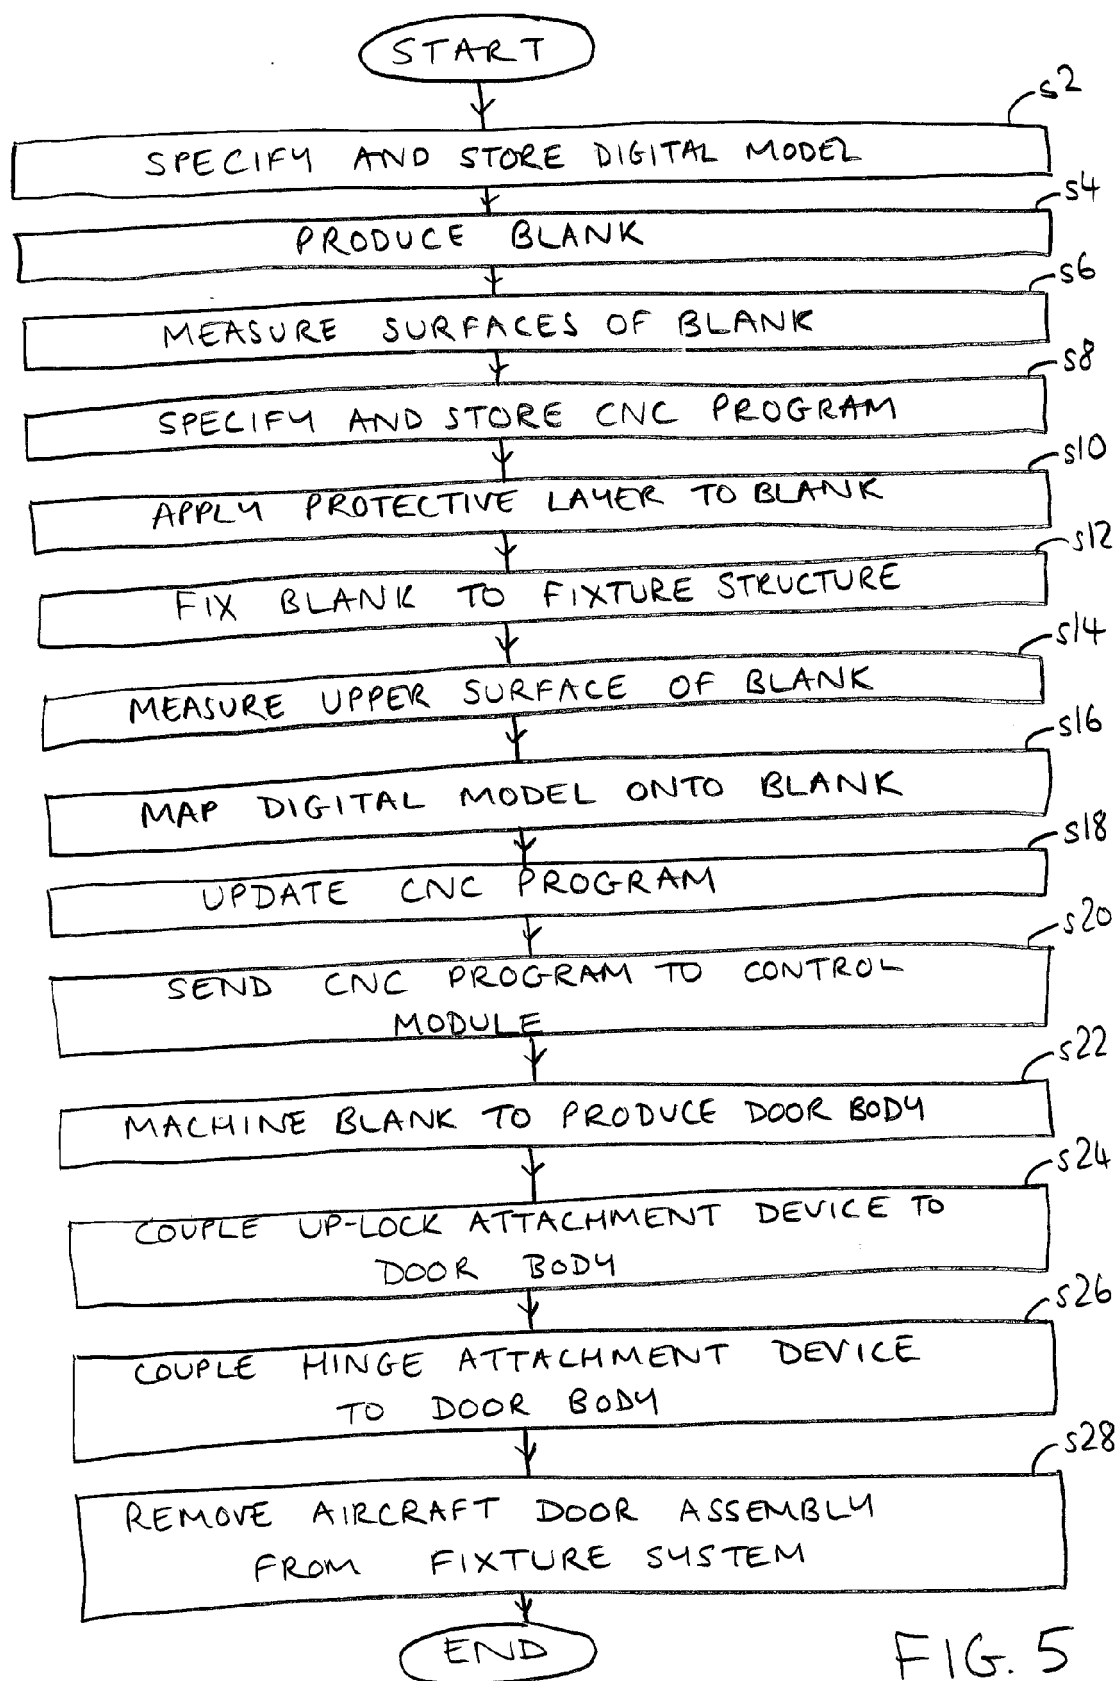 START
s2
SPECIFY AND STORE DIGITAL MODEL
s4
PRODUCE BLANK
s6
MEASURE SURFACES OF BLANK
s8
SPECIFY AND STORE CNC PROGRAM
s10
APPLY PROTECTIVE LAYER TO BLANK
s12
FIX BLANK TO FIXTURE STRUCTURE
s14
MEASURE UPPER SURFACE OF BLANK
s16
MAP DIGITAL MODEL ONTO BLANK
s18
UPDATE CNC PROGRAM
s20
SEND CNC PROGRAM TO CONTROL
MODULE
s22
MACHINE BLANK TO PRODUCE DOOR BODY
s24
COUPLE UP-LOCK ATTACHMENT DEVICE TO
DOOR BODY
s26
COUPLE HINGE ATTACHMENT DEVICE
TO DOOR BODY
s28
REMOVE AIRCRAFT DOOR ASSEMBLY
FROM FIXTURE SYSTEM
END
FIG. 5